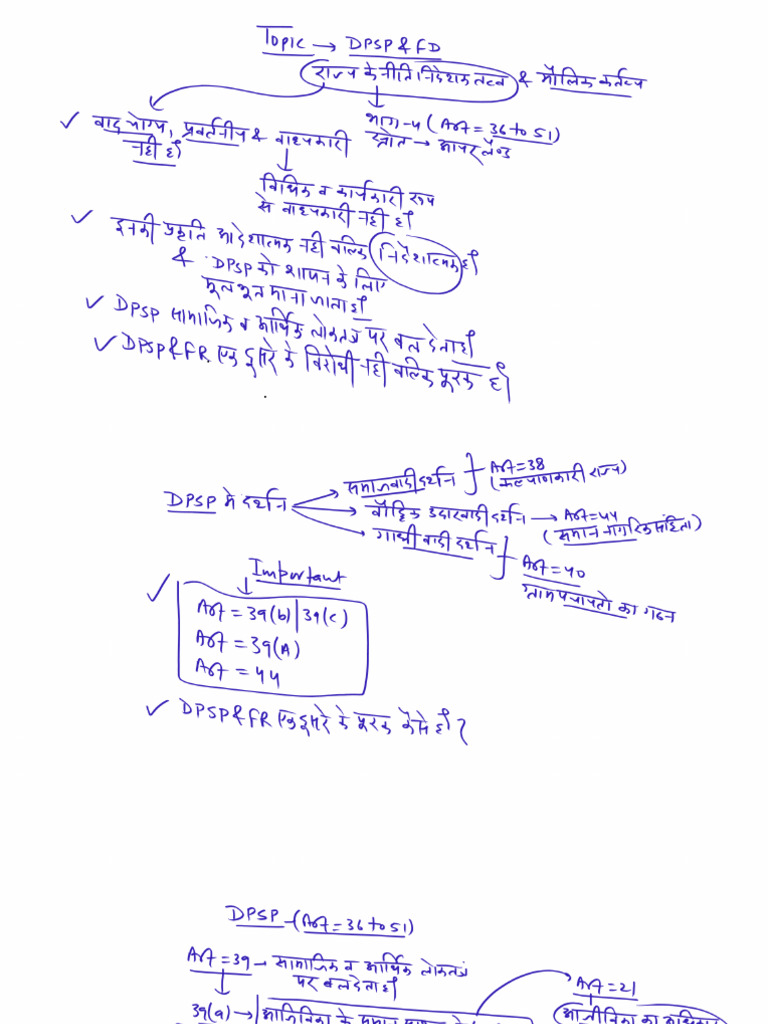 Topic → DPSP & FD
राज्य के नीति निदेशक तत्व & मौलिक कर्तव्य
भाग-4 (Art = 36 to 51)
स्त्रोत → आयरलैण्ड
✓ वाद योग्य, प्रवर्तनीय & बाध्यकारी
नही है।
विधिक व कार्यकारी रूप
से बाध्यकारी नही है।
✓ इनकी प्रकृति आदेशात्मक नही बल्कि निर्देशात्मक है।
& DPSP को शासन के लिए
मूलभूत माना जाता है।
✓ DPSP सामाजिक व आर्थिक लोकतंत्र पर बल देता है।
✓ DPSP & FR एक दूसरे के विरोधी नही बल्कि पूरक है।
DPSP मे दर्शन
→ समाजवादी दर्शन } Art = 38
(कल्याणकारी राज्य)
→ बौद्धिक उदारवादी दर्शन → Art = 44
(समान नागरिक संहिता)
→ गाधीवादी दर्शन } Art = 40
ग्रामपंचायतो का गठन
Important
✓ Art = 39(b) | 39(c)
Art = 39(A)
Art = 44
✓ DPSP & FR एक दूसरे के पूरक कैसे है?
DPSP - (Art = 36 to 51)
Art = 39 → सामाजिक व आर्थिक लोकतंत्र
पर बल देता है।
Art = 21
39(a) → आजिविका के समान
आजीविका का अधिकार